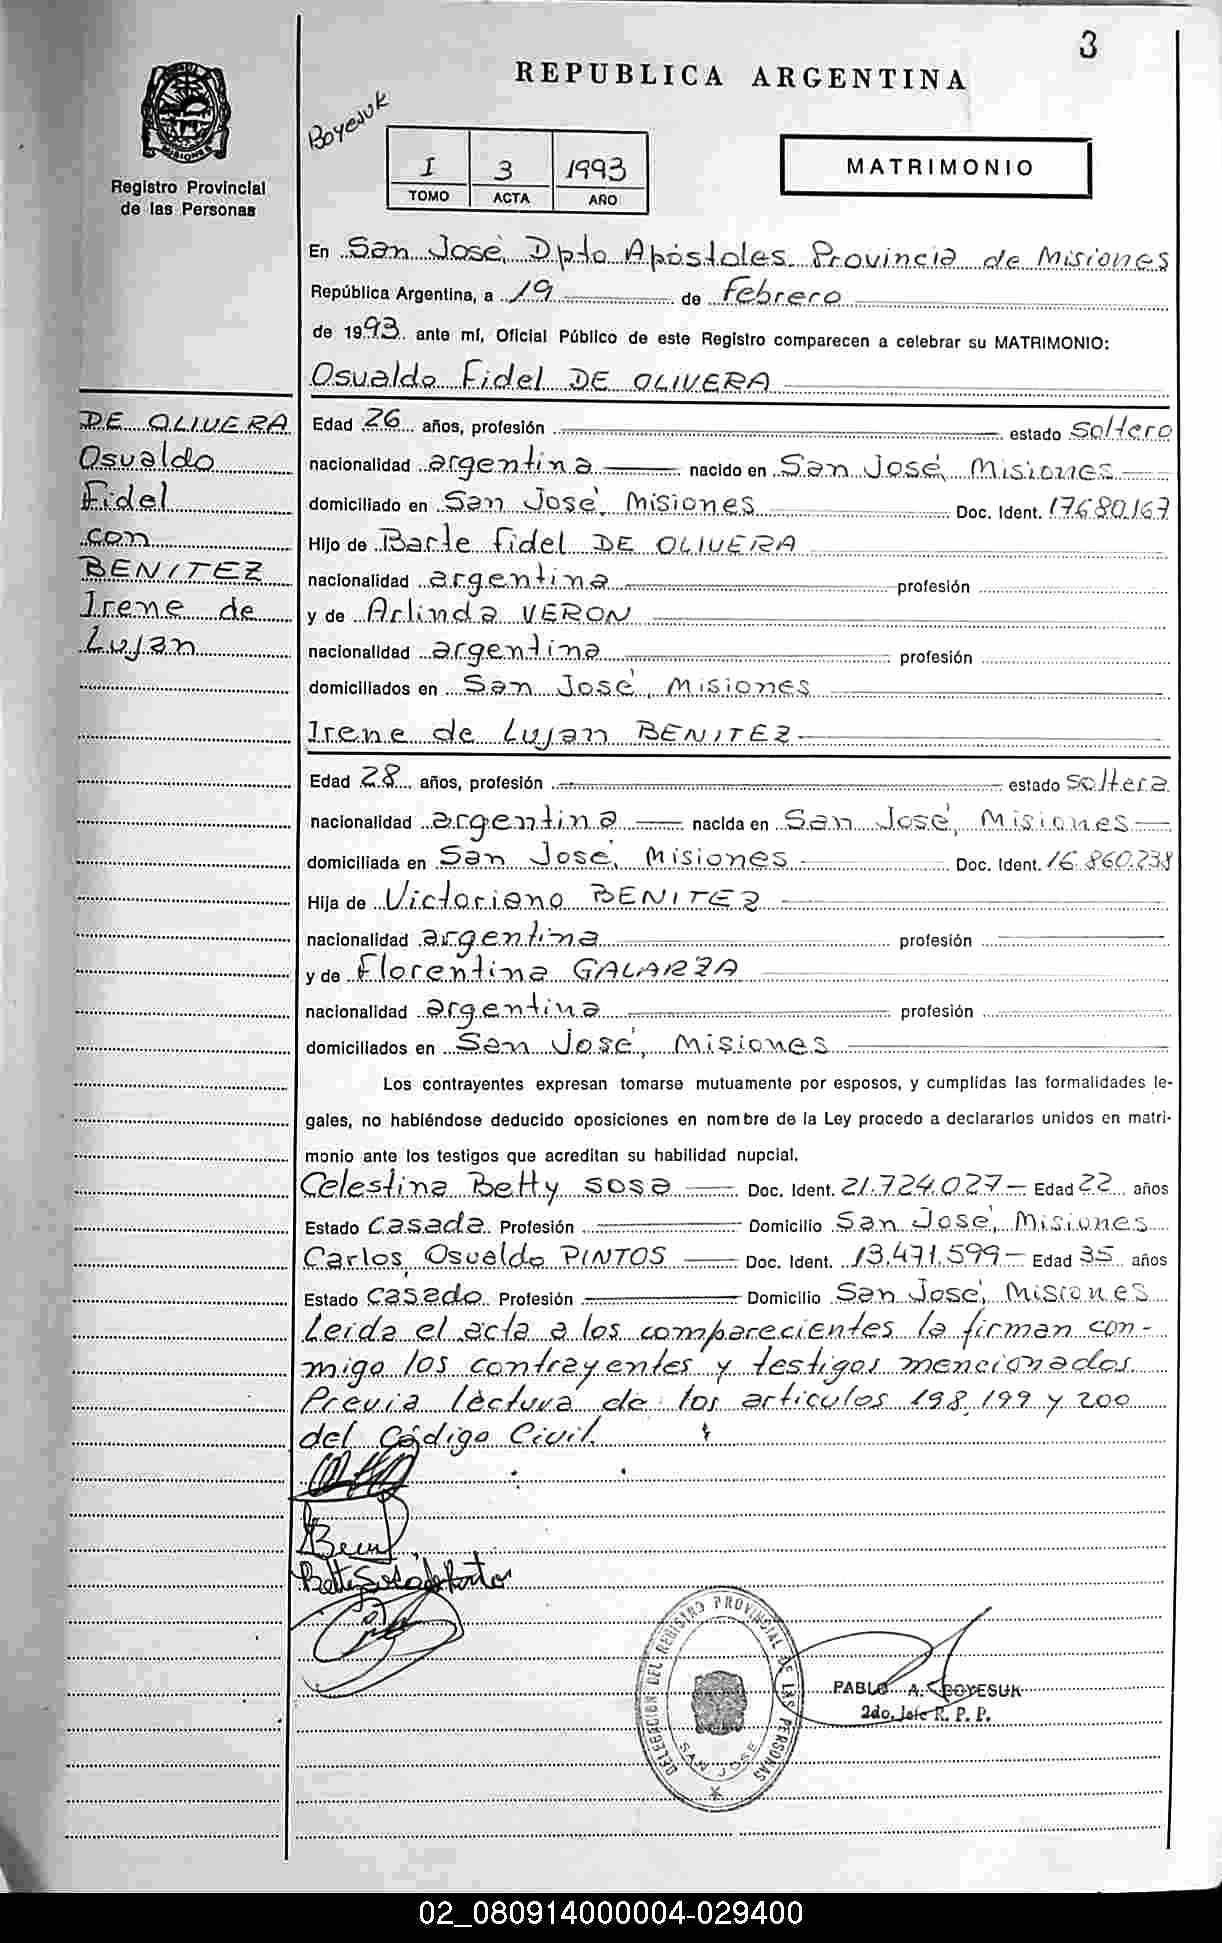 3
REPUBLICA ARGENTINA
Boyesuk
MISIONES
Registro Provincial
de las Personas
I 3 1993
TOMO ACTA AÑO
MATRIMONIO
En San José, Dpto Apóstoles Provincia de Misiones
República Argentina, a 19 de febrero
de 1993 ante mí, Oficial Público de este Registro comparecen a celebrar su MATRIMONIO:
Osvaldo Fidel DE OLIVERA
DE OLIVERA
Osvaldo
Fidel
con
BENITEZ
Irene de
Lujan
Edad 26 años, profesión estado soltero
nacionalidad argentina nacido en San José, Misiones
domiciliado en San José, Misiones Doc. Ident. 17680167
Hijo de Barle Fidel DE OLIVERA
nacionalidad argentina profesión
y de Arlinda VERON
nacionalidad argentina profesión
domiciliados en San José, Misiones
Irene de Lujan BENITEZ
Edad 28 años, profesión estado soltera
nacionalidad argentina nacida en San José, Misiones
domiciliada en San José, Misiones Doc. Ident. 16.860.238
Hija de Victoriano BENITEZ
nacionalidad argentina profesión
y de Florentina GALARZA
nacionalidad argentina profesión
domiciliados en San José, Misiones
Los contrayentes expresan tomarse mutuamente por esposos, y cumplidas las formalidades le-
gales, no habiéndose deducido oposiciones en nombre de la Ley procedo a declararlos unidos en matri-
monio ante los testigos que acreditan su habilidad nupcial.
Celestina Betty SOSA Doc. Ident. 21.724.027 Edad 22 años
Estado Casada Profesión Domicilio San José, Misiones
Carlos Osvaldo PINTOS Doc. Ident. 13.471.599 Edad 35 años
Estado Casado Profesión Domicilio San José, Misiones
Leida el acta a los comparecientes la firman con-
migo los contrayentes y testigos mencionados.
Previa lectura de los articulos 198, 199 y 200
del Código Civil.
Betty Sosa de Pintos
DELEGACION DEL REGISTRO PROVINCIAL DE LAS PERSONAS
SAN JOSE
PABLO A. BOYESUK
2do. Jefe R. P. P.
02_080914000004-029400